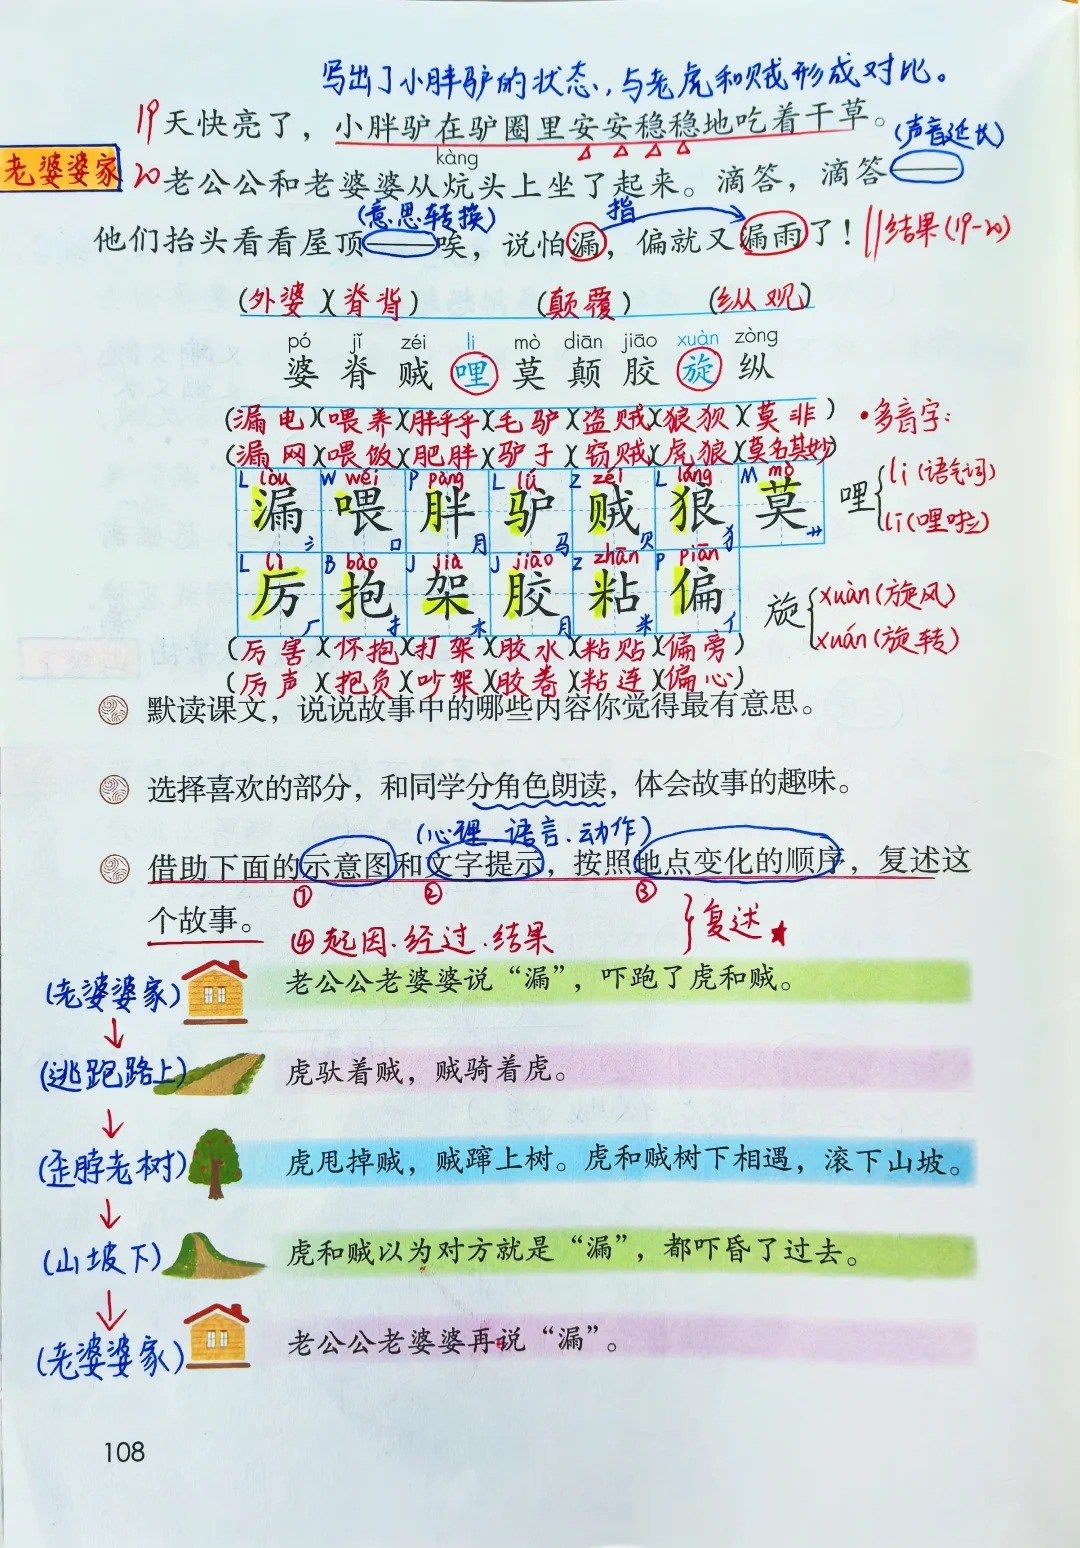 写出了小胖驴的状态，与老虎和贼形成对比。
19 天快亮了，小胖驴在驴圈里安安稳稳地吃着干草。
(声音延长)
kàng
老婆婆家 20 老公公和老婆婆从炕头上坐了起来。滴答，滴答——
(意思转换) 指
他们抬头看看屋顶——唉，说怕漏，偏就又漏雨了！ 结果(19-20)
(外婆)(脊背) (颠覆) (纵观)
pó jǐ zéi li mò diān jiāo xuàn zòng
婆 脊 贼 哩 莫 颠 胶 旋 纵
(漏电)(喂养)(胖乎乎)(毛驴)(盗贼)(狼狈)(莫非) •多音字:
(漏网)(喂饭)(肥胖)(驴子)(窃贼)(虎狼)(莫名其妙)
L lòu W wèi P pàng L lǘ Z zéi L láng M mò
漏 喂 胖 驴 贼 狼 莫
氵 口 月 马 贝 犭 艹
哩 li(语气词)
lī(哩啦)
L lì B bào J jià J jiāo Z zhān P piān
厉 抱 架 胶 粘 偏
厂 扌 木 月 米 亻
旋 xuàn(旋风)
xuán(旋转)
(厉害)(怀抱)(打架)(胶水)(粘贴)(偏旁)
(厉声)(抱负)(吵架)(胶卷)(粘连)(偏心)
默读课文，说说故事中的哪些内容你觉得最有意思。
选择喜欢的部分，和同学分角色朗读，体会故事的趣味。
(心理.语言.动作)
借助下面的示意图和文字提示，按照地点变化的顺序，复述这
① ② ③
个故事。 ④起因.经过.结果 复述★
(老婆婆家) 老公公老婆婆说“漏”，吓跑了虎和贼。
↓
(逃跑路上) 虎驮着贼，贼骑着虎。
↓
(歪脖老树) 虎甩掉贼，贼蹿上树。虎和贼树下相遇，滚下山坡。
↓
(山坡下) 虎和贼以为对方就是“漏”，都吓昏了过去。
↓
(老婆婆家) 老公公老婆婆再说“漏”。
108